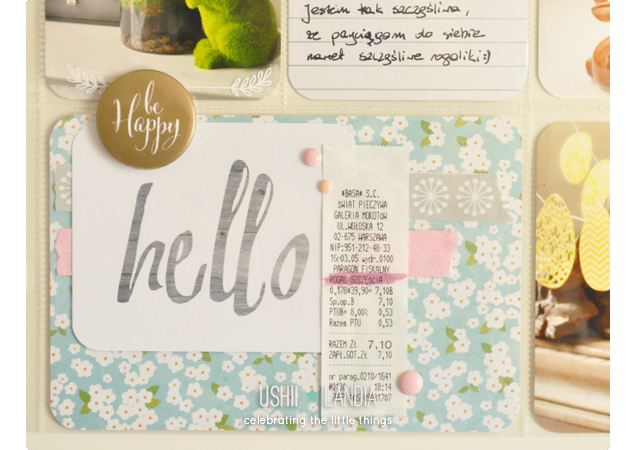 jestem tak szczęśliwa,
że przyciągam do siebie
nawet szczęśliwe rogaliki:)
be
Happy
hello
*BASA* S.C.
ŚWIAT PIECZYWA
GALERIA MOKOTÓW
UL.WOŁOSKA 12
02-675 WARSZAWA
NIP:951-212-48-33
16-03.05 wydr.0100
PARAGON FISKALNY
ROGAL SZCZĘŚCIA
0,178*39,90= 7,10B
Sp.op.B 7,10
PTUB= 8,00% 0,53
Razem PTU 0,53
RAZEM ZŁ 7,10
ZAPŁ.GOT.ZŁ 7,10
nr parag.0210/1641
18:14
USHII LANDIA
celebrating the little things